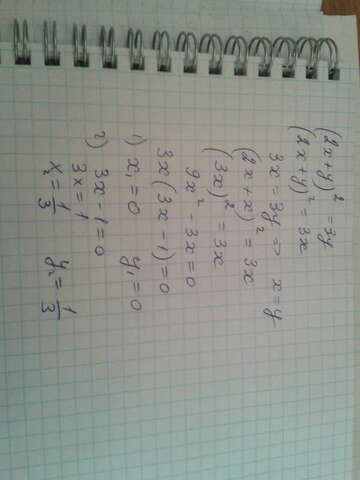 (2x+y)² = 3y
(2x+y)² = 3x
3x = 3y ⇒ x = y
(2x+x)² = 3x
(3x)² = 3x
9x² - 3x = 0
3x(3x - 1) = 0
1) x₁ = 0 y₁ = 0
2) 3x - 1 = 0
3x = 1
x₂ = 1/3 y₂ = 1/3